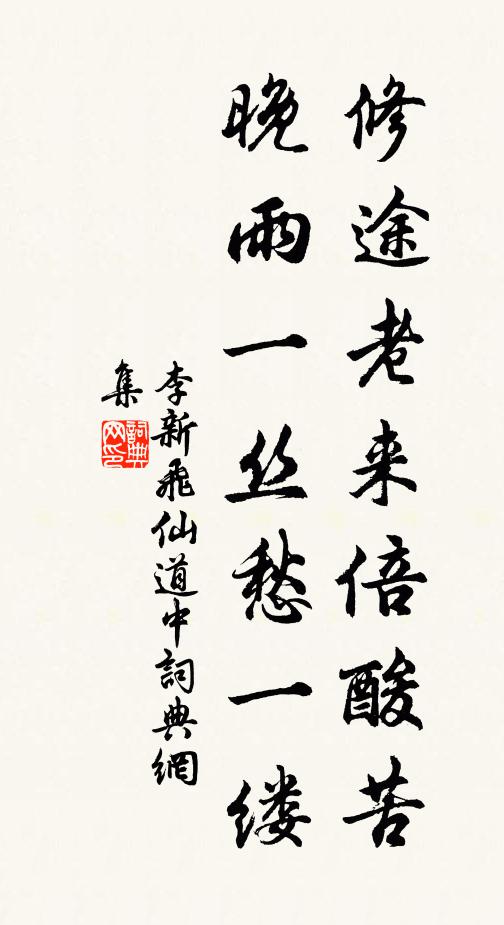 修途老来倍酸苦
晚雨一丝愁一缕
李新飛仙道中詞典網
集
詞典
网印